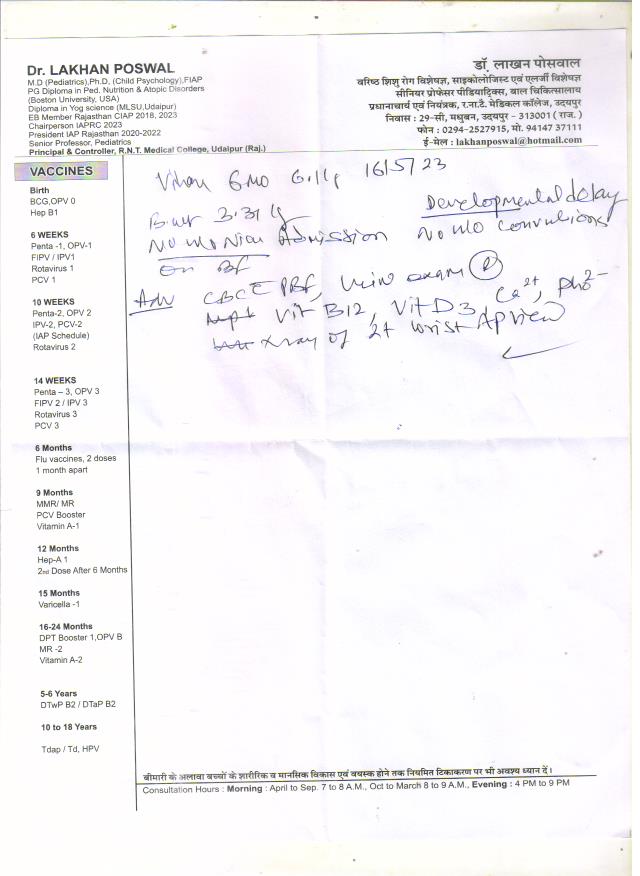 Dr. LAKHAN POSWAL
M.D (Pediatrics),Ph.D, (Child Psychology),FIAP
PG Diploma in Ped. Nutrition & Atopic Disorders
(Boston University, USA)
Diploma in Yog science (MLSU,Udaipur)
EB Member Rajasthan CIAP 2018, 2023
Chairperson IAPRC 2023
President IAP Rajasthan 2020-2022
Senior Professor, Pediatrics
Principal & Controller, R.N.T. Medical College, Udaipur (Raj.)
डॉ. लाखन पोसवाल
वरिष्ठ शिशु रोग विशेषज्ञ, साइकोलोजिस्ट एवं एलर्जी विशेषज्ञ
सीनियर प्रोफेसर पीडियाट्रिक्स, बाल चिकित्सालय
प्रधानाचार्य एवं नियंत्रक, र.ना.टै. मेडिकल कॉलेज, उदयपुर
निवास : 29-सी, मधुबन, उदयपुर - 313001 ( राज. )
फोन : 0294-2527915, मो. 94147 37111
ई-मेल : lakhanposwal@hotmail.com
VACCINES
Birth
BCG,OPV 0
Hep B1
6 WEEKS
Penta -1, OPV-1
FIPV / IPV1
Rotavirus 1
PCV 1
10 WEEKS
Penta-2, OPV 2
IPV-2, PCV-2
(IAP Schedule)
Rotavirus 2
14 WEEKS
Penta – 3, OPV 3
FIPV 2 / IPV 3
Rotavirus 3
PCV 3
6 Months
Flu vaccines, 2 doses
1 month apart
9 Months
MMR/ MR
PCV Booster
Vitamin A-1
12 Months
Hep-A 1
2nd Dose After 6 Months
15 Months
Varicella -1
16-24 Months
DPT Booster 1,OPV B
MR -2
Vitamin A-2
5-6 Years
DTwP B2 / DTaP B2
10 to 18 Years
Tdap / Td, HPV
Vihan 6 mo 16/5/23
Developmental delay
B.wt 3.31 kg
No h/o Nicu Admission No h/o convulsions
On BF
Adv CBC PBF, Urine exam (R)
Vit B12, Vit D3 Ca2+, Pho2-
xray of wrist Ap view
बीमारी के अलावा बच्चों के शारीरिक व मानसिक विकास एवं वयस्क होने तक नियमित टिकाकरण पर भी अवश्य ध्यान दें।
Consultation Hours : Morning : April to Sep. 7 to 8 A.M., Oct to March 8 to 9 A.M., Evening : 4 PM to 9 PM